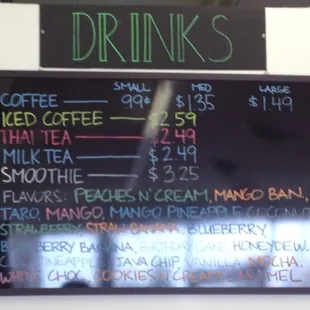 DRINKS
SMALL MED LARGE
COFFEE 99¢ $1.35 $1.49
ICED COFFEE $2.59
THAI TEA $2.49
MILK TEA $2.49
SMOOTHIE $3.25
FLAVORS: PEACHES N' CREAM, MANGO BAN,
TARO, MANGO, MANGO PINEAPPLE COCONUT
STRAWBERRY, STRAW BANANA, BLUEBERRY,
BANANA, BIRTHDAY CAKE HONEYDEW,
PINEAPPLE, JAVA CHIP, VANILLA, MOCHA,
WHITE CHOC, COOKIES N' CREAM, CARAMEL